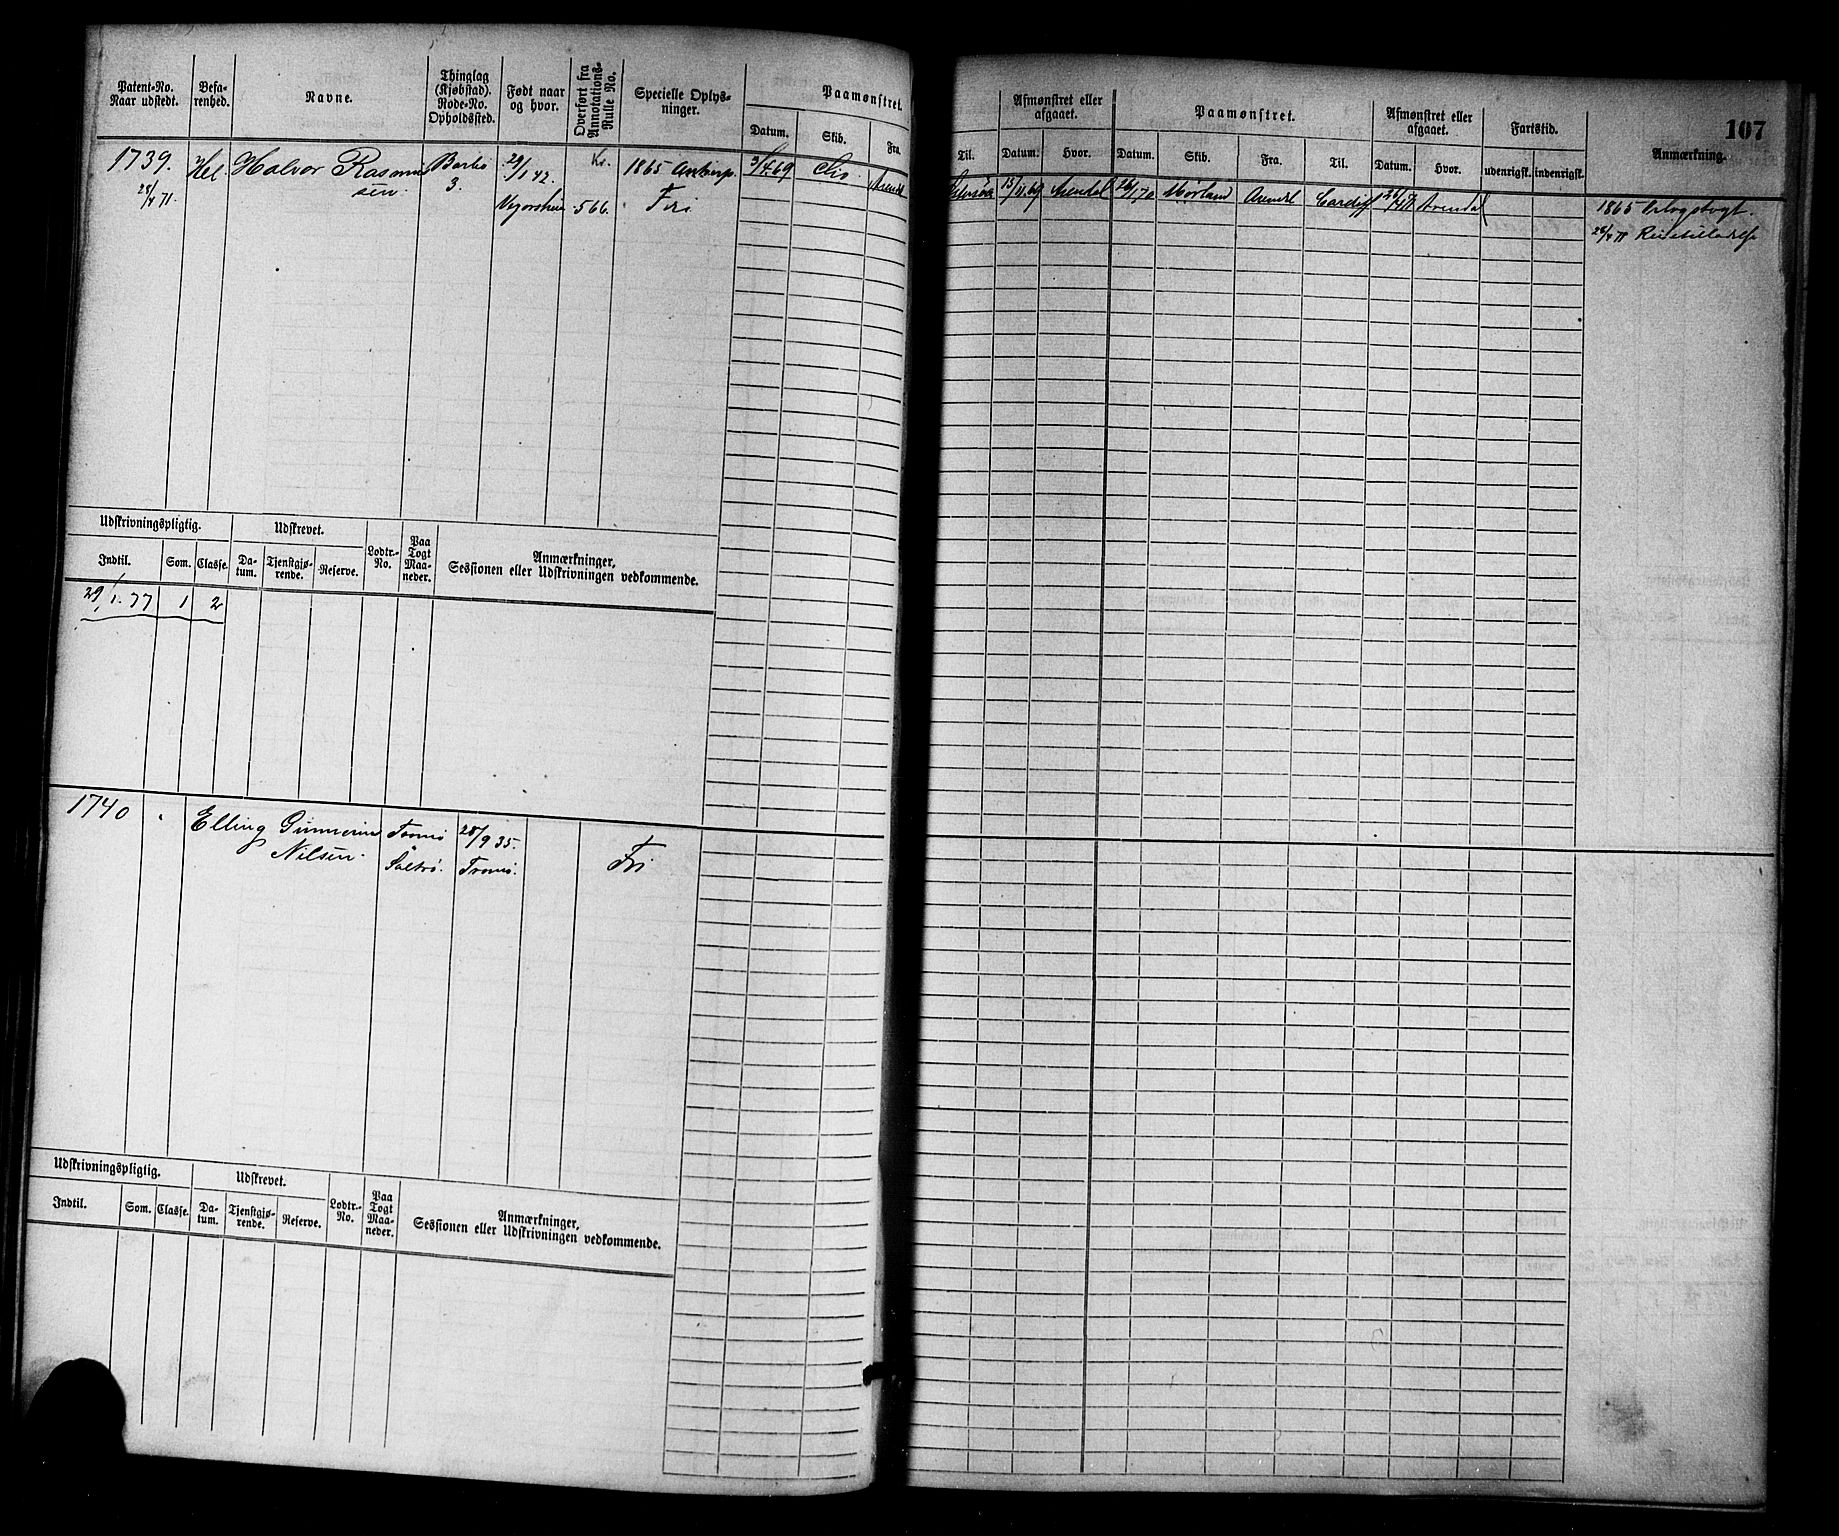 107
Patent-No. Naar udstedt. Befarenhed. Navne. Thinglag (Kjøbstad). Rode-No. Opholdssted. Født naar og hvor. Overført fra Annotations-Rulle No. Specielle Oplysninger. Paamønstret.
Datum. Skib. Fra.
Til. Afmønstret eller afgaaet. Datum. Hvor. Paamønstret. Datum. Skib. Fra. Til. Afmønstret eller afgaaet. Datum. Hvor. Fartstid. udenrigsk. indenrigsk. Anmærkning.
1739. Hel Halvor Rasmussen. Barbo 29/1 42. 1865 Antwerp. 3/4 69 Clio. Arendal
28/4 71. 3. 566. Fri
15/11 69 Arendal 26/1 70 Morland Arendal Cardiff Arendal
1865
28/4 71
Udskrivningspligtig. Udskrevet. Lodtr.-No. Paa Togt Maaneder. Anmærkninger, Sessionen eller Udskrivningen vedkommende.
Indtil. Som. Classe. Datum. Tjenstgjørende. Reserve.
29/1. 77 1 2
1740 Elling Gunnerius Tromø 28/9 35. Fri
Nilsen. Tromø.
Udskrivningspligtig. Udskrevet. Lodtr.-No. Paa Togt Maaneder. Anmærkninger, Sessionen eller Udskrivningen vedkommende.
Indtil. Som. Classe. Datum. Tjenstgjørende. Reserve.